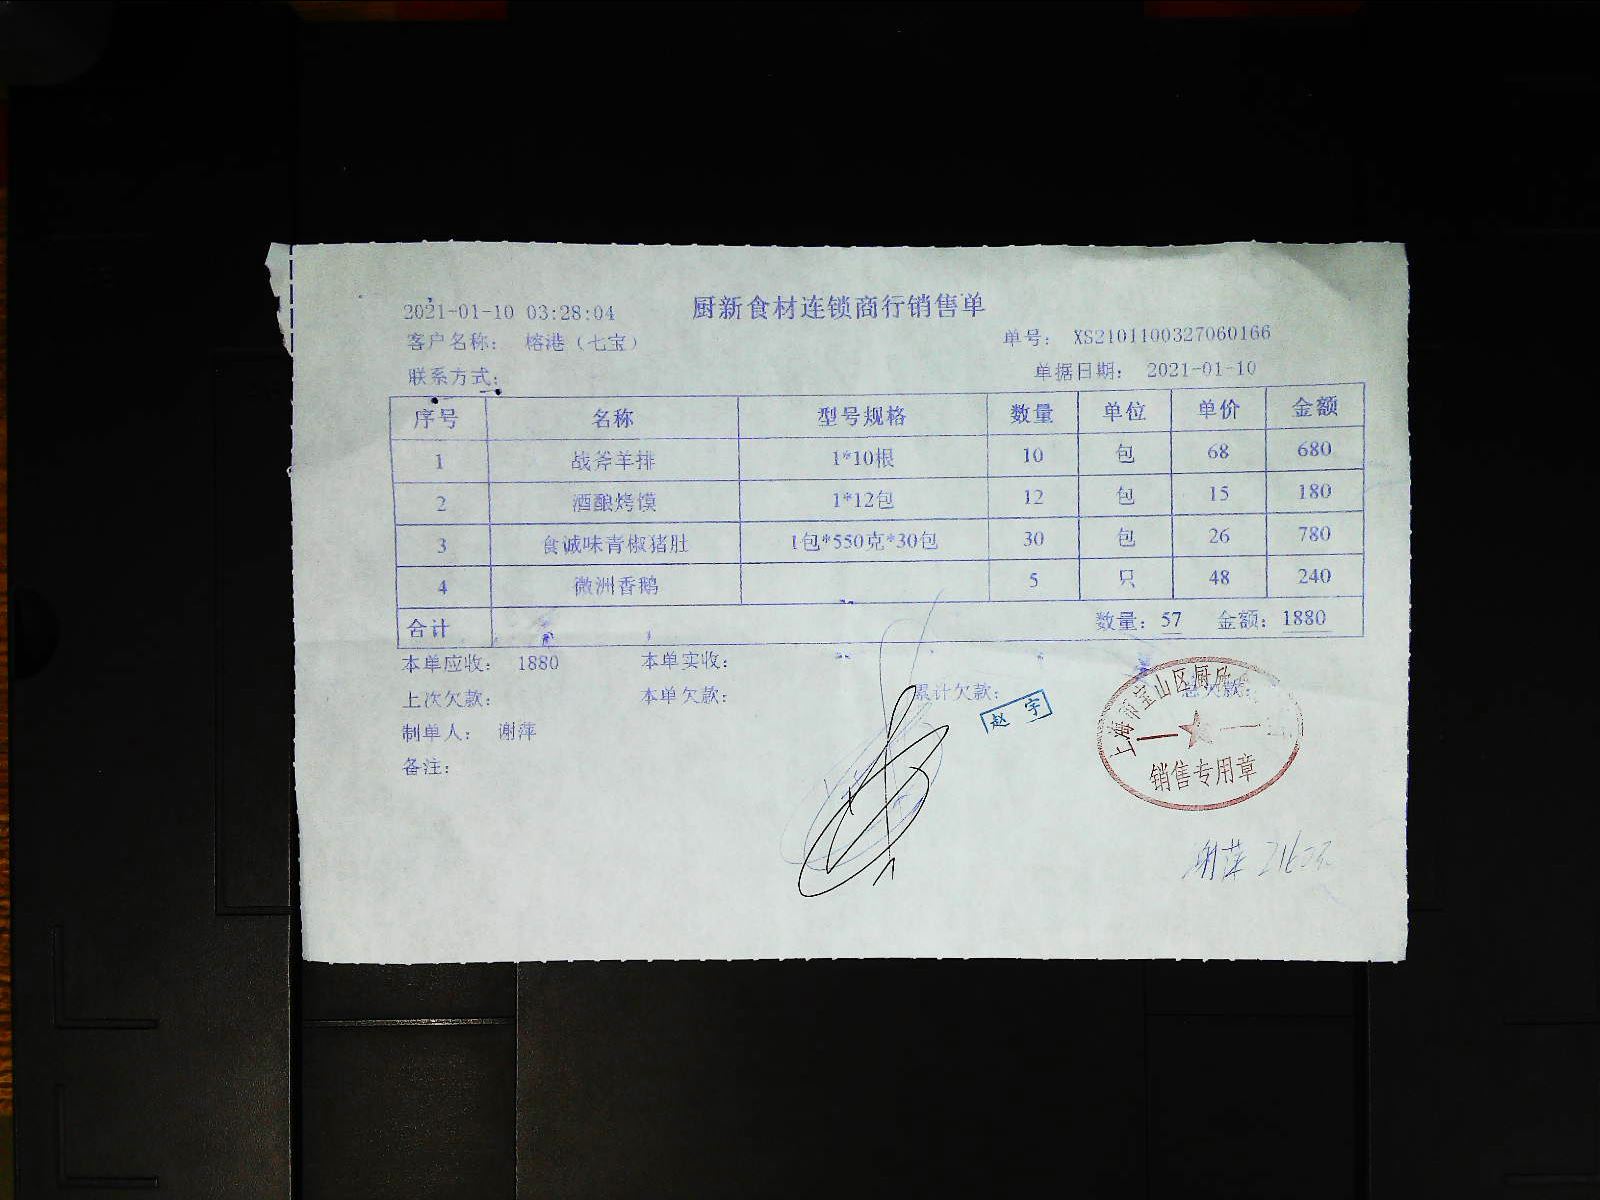 厨新食材连锁商行销售单
2021-01-10 03:28:04
客户名称： 榕港（七宝） 单号： XS2101100327060166
联系方式： 单据日期： 2021-01-10
序号 名称 型号规格 数量 单位 单价 金额
1 战斧羊排 1*10根 10 包 68 680
2 酒酿烤馍 1*12包 12 包 15 180
3 食诚味青椒猪肚 1包*550克*30包 30 包 26 780
4 微洲香鹅 5 只 48 240
合计 数量：57 金额：1880
本单应收： 1880 本单实收：
上次欠款： 本单欠款： 累计欠款： 总欠款：
赵宇
制单人： 谢萍
备注：
上海市宝山区厨
销售专用章
谢萍